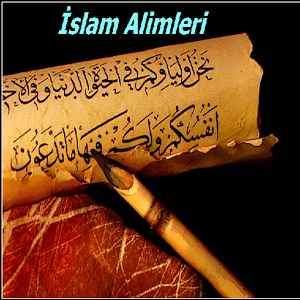 İslam Alimleri
نحن اولياؤكم في الحيوة الدنيا وفي
انفسكم ولكم فيها ما تدعون